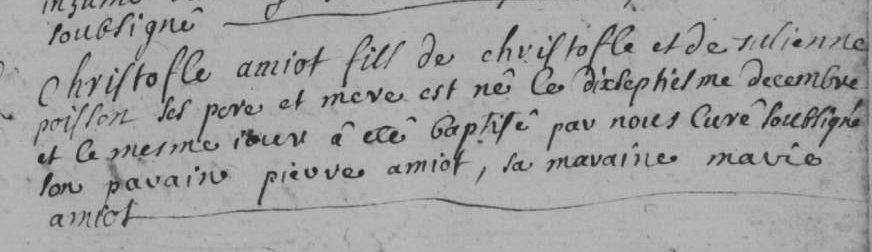 soubsigné
Christofle amiot fils de christofle et de Julienne
poisson ses pere et mere est né le dixseptiesme decembre
et le mesme iour â eté baptisé par nous Curé soubsigné
son parain pierre amiot, sa maraine marie
amiot